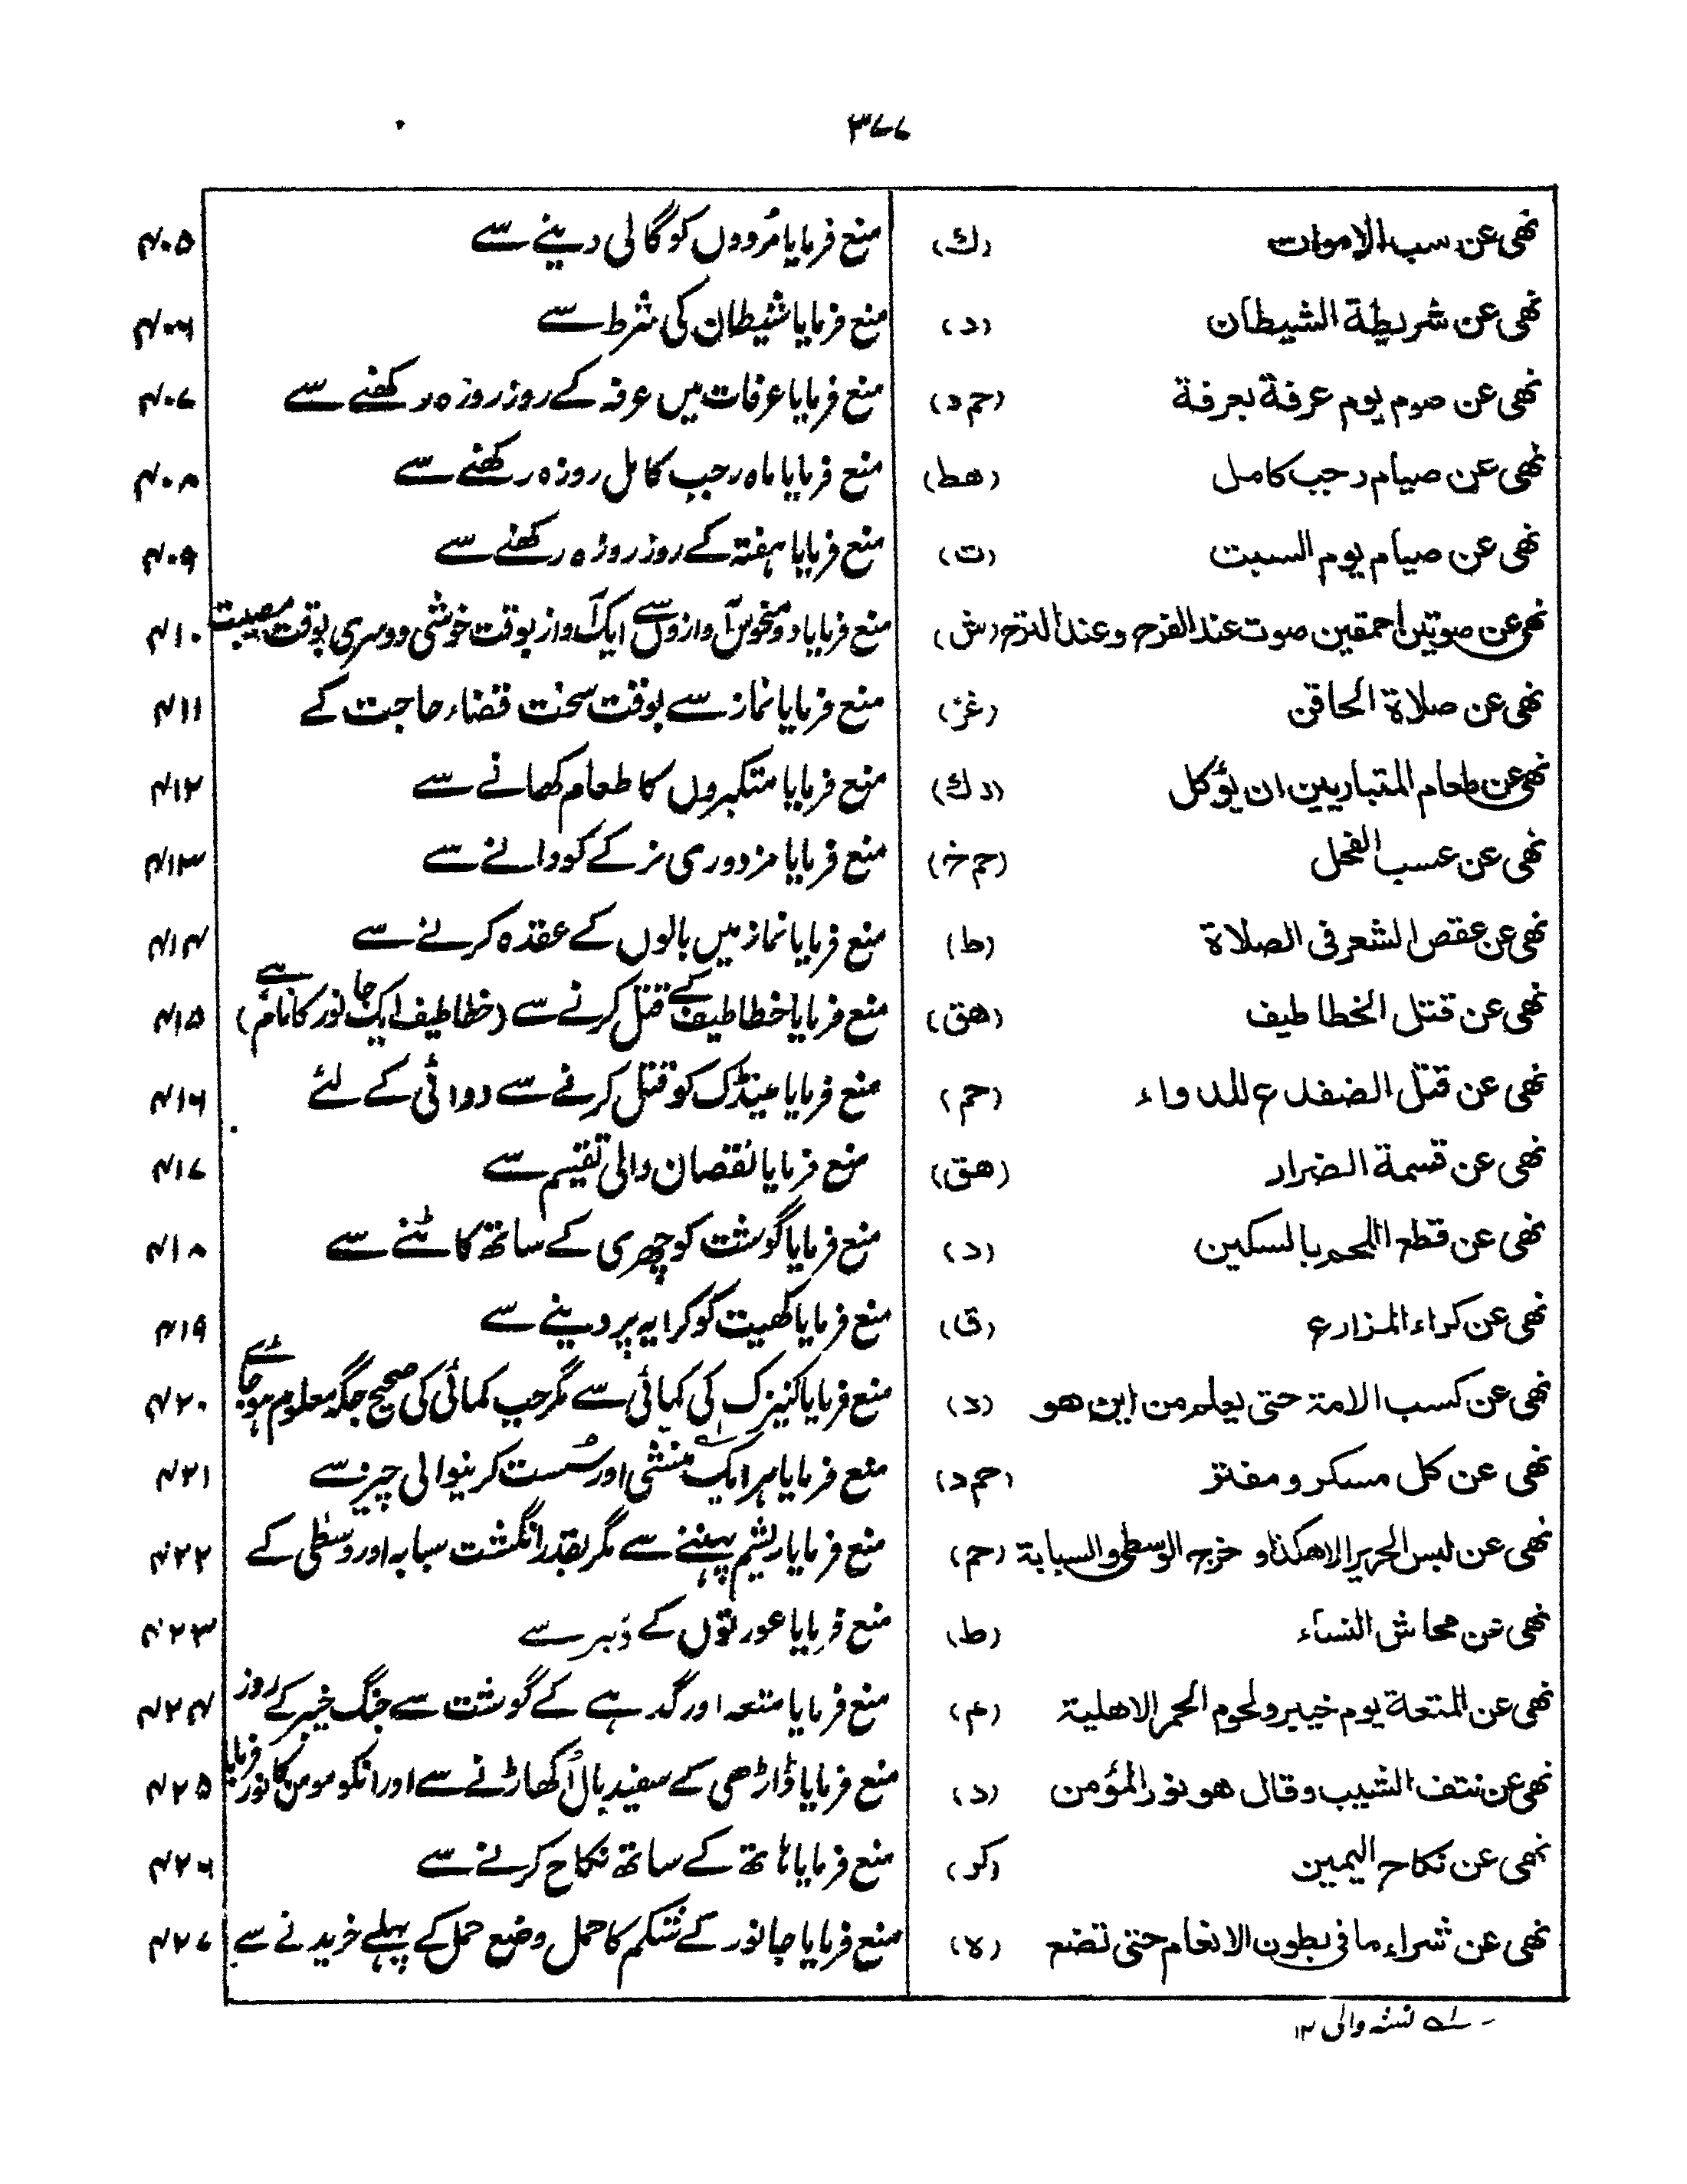 ۳۷۷
نهى عن سب الاموات (ك) منع فرمایا مُردوں کو گالی دینے سے ۴۰۵
نهى عن شريطة الشيطان (د) منع فرمایا شیطان کی شرط سے ۴۰۶
نهى عن صوم يوم عرفة بعرفة (حم د) منع فرمایا عرفات میں عرفہ کے روز روزہ رکھنے سے ۴۰۷
نهى عن صيام رجب كامل (هط) منع فرمایا ماہ رجب کامل روزہ رکھنے سے ۴۰۸
نهى عن صيام يوم السبت (ت) منع فرمایا ہفتہ کے روز روزہ رکھنے سے ۴۰۹
نهى عن صوتين احمقين صوت عند الفرح وعند الترح (ش) منع فرمایا دو منحوس آوازوں سے ایک آواز بوقت خوشی دوسری بوقت مصیبت ۴۱۰
نهى عن صلاة الحاقن (غز) منع فرمایا نماز سے بوقت سخت قضاء حاجت کے ۴۱۱
نهى عن طعام المتباريين ان يؤكل (د ك) منع فرمایا متکبروں کا طعام کھانے سے ۴۱۲
نهى عن عسب الفحل (حم خ) منع فرمایا مزدوری نر کے کودانے سے ۴۱۳
نهى عن عقص الشعر فى الصلاة (ط) منع فرمایا نماز میں بالوں کے عقدہ کرنے سے ۴۱۴
نهى عن قتل الخطاطيف (هق) منع فرمایا خطاطیف کے قتل کرنے سے (خطاطیف ایک جانور کا نام ہے) ۴۱۵
نهى عن قتل الضفدع للدواء (حم) منع فرمایا مینڈک کو قتل کرنے سے دوائی کے لئے ۴۱۶
نهى عن قسمة الضرار (هق) منع فرمایا نقصان والی تقسیم سے ۴۱۷
نهى عن قطع اللحم بالسكين (د) منع فرمایا گوشت کو چھری کے ساتھ کاٹنے سے ۴۱۸
نهى عن كراء المزارع (ق) منع فرمایا کھیت کو کرایہ پر دینے سے ۴۱۹
نهى عن كسب الامة حتى يعلم من اين هو (د) منع فرمایا کنیزک کی کمائی سے مگر جب کمائی کی صحیح جگہ معلوم ہو جائے ۴۲۰
نهى عن كل مسكر و مفتر (حم د) منع فرمایا ہر ایک منشی اور سُست کرنیوالی چیز سے ۴۲۱
نهى عن لبس الحرير الا هكذا و خرج الوسطى والسبابة (حم) منع فرمایا ریشم پہننے سے مگر بقدر انگشت سبابہ اور وسطٰی کے ۴۲۲
نهى عن محاش النساء (ط) منع فرمایا عورتوں کے دُبر سے ۴۲۳
نهى عن المتعة يوم خيبر ولحوم الحمر الاهلية (م) منع فرمایا متعہ اور گدہے کے گوشت سے جنگ خیبر کے روز ۴۲۴
نهى عن نتف الشيب وقال هو نور المؤمن (د) منع فرمایا ڈاڑھی کے سفید بال اُکھاڑنے سے اور انکو مومن کا نور فرمایا ۴۲۵
نهى عن نكاح اليمين (کر) منع فرمایا ہاتھ کے ساتھ نکاح کرنے سے ۴۲۶
نهى عن شراء ما فى بطون الانعام حتى تضع (ه) منع فرمایا جانور کے شکم کا حمل وضع حمل کے پہلے خریدنے سے ۴۲۷
؎۱ نشہ والی ۱۲